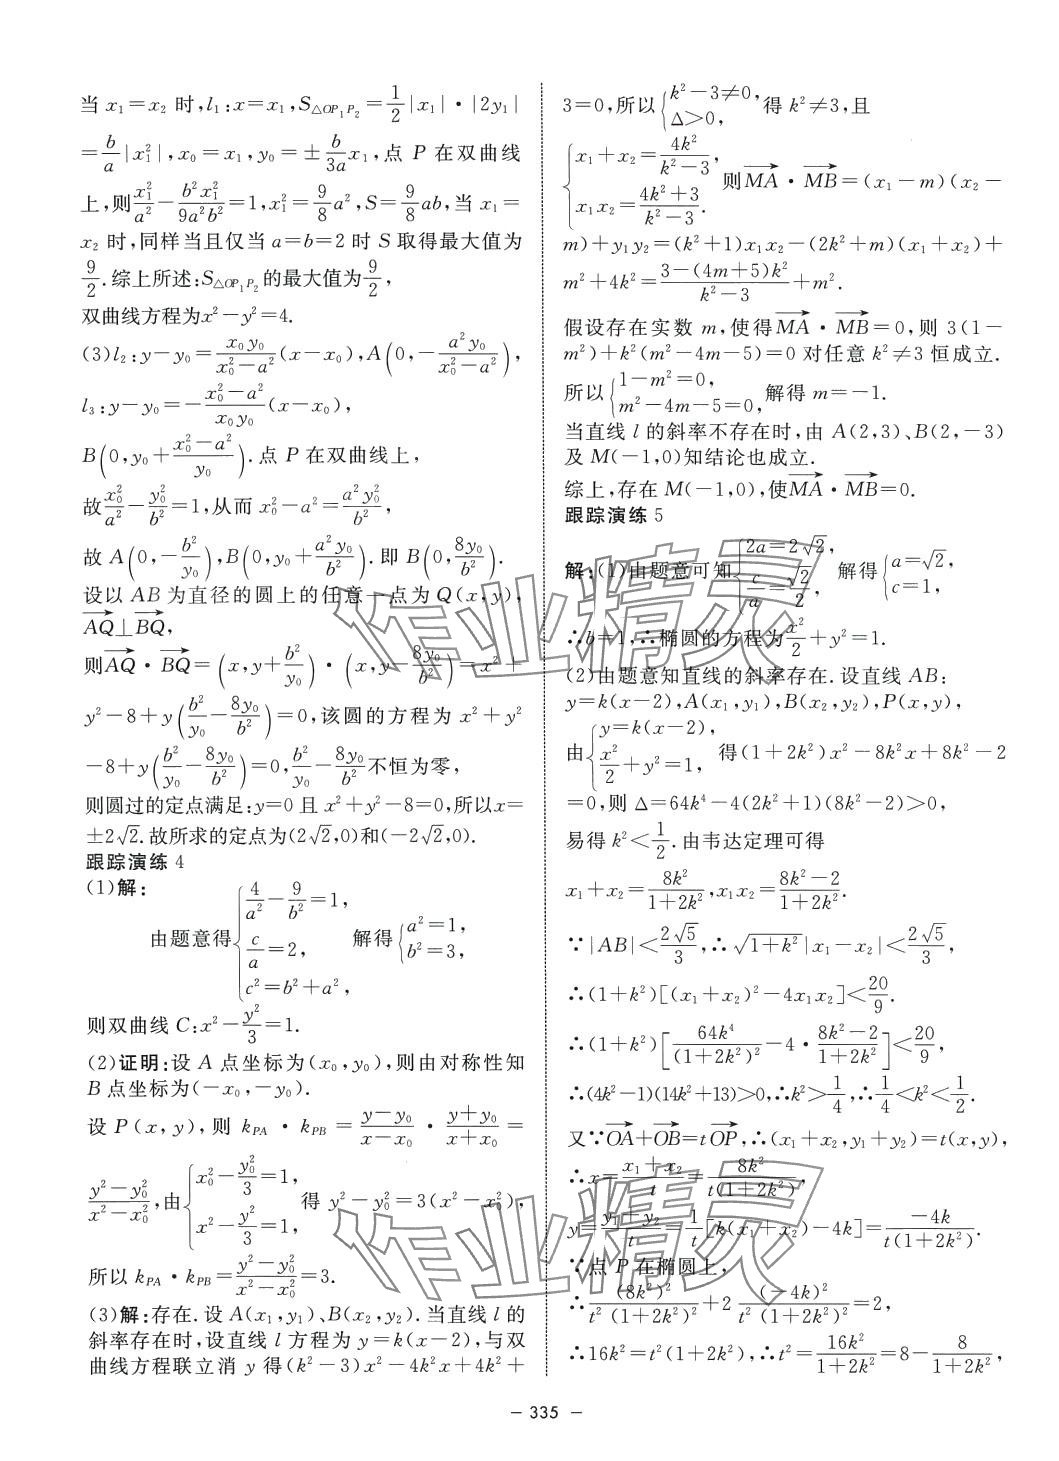 当 x₁=x₂ 时,l₁:x=x₁,S△OP₁P₂=1/2|x₁|·|2y₁|
=b/a|x₁²|,x₀=x₁,y₀=±b/3a x₁,点 P 在双曲线
上,则x₁²/a²-b²x₁²/9a²b²=1,x₁²=9/8a²,S=9/8ab,当 x₁=
x₂ 时,同样当且仅当 a=b=2 时 S 取得最大值为
9/2.综上所述:S△OP₁P₂的最大值为9/2,
双曲线方程为x²-y²=4.
(3)l₂:y-y₀=x₀y₀/(x₀²-a²)(x-x₀),A(0,-a²y₀/(x₀²-a²)),
l₃:y-y₀=-(x₀²-a²)/x₀y₀(x-x₀),
B(0,y₀+(x₀²-a²)/y₀).点 P 在双曲线上,
故x₀²/a²-y₀²/b²=1,从而 x₀²-a²=a²y₀²/b²,
故 A(0,-b²/y₀),B(0,y₀+a²y₀/b²).即 B(0,8y₀/b²).
设以 AB 为直径的圆上的任意一点为 Q(x,y),
AQ⊥BQ,
则AQ·BQ=(x,y+b²/y₀)·(x,y-8y₀/b²)=x²+
y²-8+y(b²/y₀-8y₀/b²)=0,该圆的方程为 x²+y²
-8+y(b²/y₀-8y₀/b²)=0,b²/y₀-8y₀/b²不恒为零,
则圆过的定点满足:y=0 且 x²+y²-8=0,所以x=
±2√2.故所求的定点为(2√2,0)和(-2√2,0).
跟踪演练 4
(1)解:
由题意得{4/a²-9/b²=1, c/a=2, c²=b²+a², 解得{a²=1, b²=3,
则双曲线 C:x²-y²/3=1.
(2)证明:设 A 点坐标为(x₀,y₀),则由对称性知
B 点坐标为(-x₀,-y₀).
设 P(x,y),则 kPA·kPB=(y-y₀)/(x-x₀)·(y+y₀)/(x+x₀)=
(y²-y₀²)/(x²-x₀²),由{x₀²-y₀²/3=1, x²-y²/3=1, 得 y²-y₀²=3(x²-x₀²),
所以 kPA·kPB=(y²-y₀²)/(x²-x₀²)=3.
(3)解:存在.设 A(x₁,y₁)、B(x₂,y₂).当直线 l 的
斜率存在时,设直线 l 方程为 y=k(x-2),与双
曲线方程联立消 y 得(k²-3)x²-4k²x+4k²+
3=0,所以{k²-3≠0, Δ>0, 得 k²≠3,且
{x₁+x₂=4k²/(k²-3), x₁x₂=(4k²+3)/(k²-3). 则MA·MB=(x₁-m)(x₂-
m)+y₁y₂=(k²+1)x₁x₂-(2k²+m)(x₁+x₂)+
m²+4k²=(3-(4m+5)k²)/(k²-3)+m².
假设存在实数 m,使得MA·MB=0,则 3(1-
m²)+k²(m²-4m-5)=0 对任意 k²≠3 恒成立.
所以{1-m²=0, m²-4m-5=0, 解得 m=-1.
当直线 l 的斜率不存在时,由 A(2,3)、B(2,-3)
及 M(-1,0)知结论也成立.
综上,存在 M(-1,0),使MA·MB=0.
跟踪演练 5
解:(1)由题意可知{2a=2√2, c/a=√2/2, 解得{a=√2, c=1,
∴b=1,∴椭圆的方程为x²/2+y²=1.
(2)由题意知直线的斜率存在.设直线 AB:
y=k(x-2),A(x₁,y₁),B(x₂,y₂),P(x,y),
由{y=k(x-2), x²/2+y²=1, 得(1+2k²)x²-8k²x+8k²-2
=0,则 Δ=64k⁴-4(2k²+1)(8k²-2)>0,
易得 k²<1/2.由韦达定理可得
x₁+x₂=8k²/(1+2k²),x₁x₂=(8k²-2)/(1+2k²).
∵|AB|<2√5/3,∴√(1+k²)|x₁-x₂|<2√5/3,
∴(1+k²)[(x₁+x₂)²-4x₁x₂]<20/9.
∴(1+k²)[64k⁴/(1+2k²)²-4·(8k²-2)/(1+2k²)]<20/9,
∴(4k²-1)(14k²+13)>0,∴k²>1/4,∴1/4<k²<1/2.
又∵OA+OB=tOP,∴(x₁+x₂,y₁+y₂)=t(x,y),
∴x=(x₁+x₂)/t=8k²/t(1+2k²),
y=(y₁+y₂)/t=1/t[k(x₁+x₂)-4k]=-4k/t(1+2k²).
∵点 P 在椭圆上,
∴(8k²)²/t²(1+2k²)²+2(-4k)²/t²(1+2k²)²=2,
∴16k²=t²(1+2k²),∴t²=16k²/(1+2k²)=8-8/(1+2k²),
- 335 -
作业精灵
作业精灵